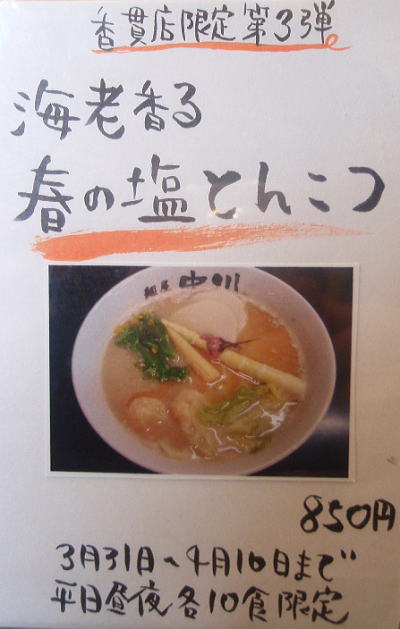 香貫店限定第3弾。
海老香る
春の塩とんこつ
麺屋 中川
850円
3月31日~4月16日まで
平日昼夜各10食限定